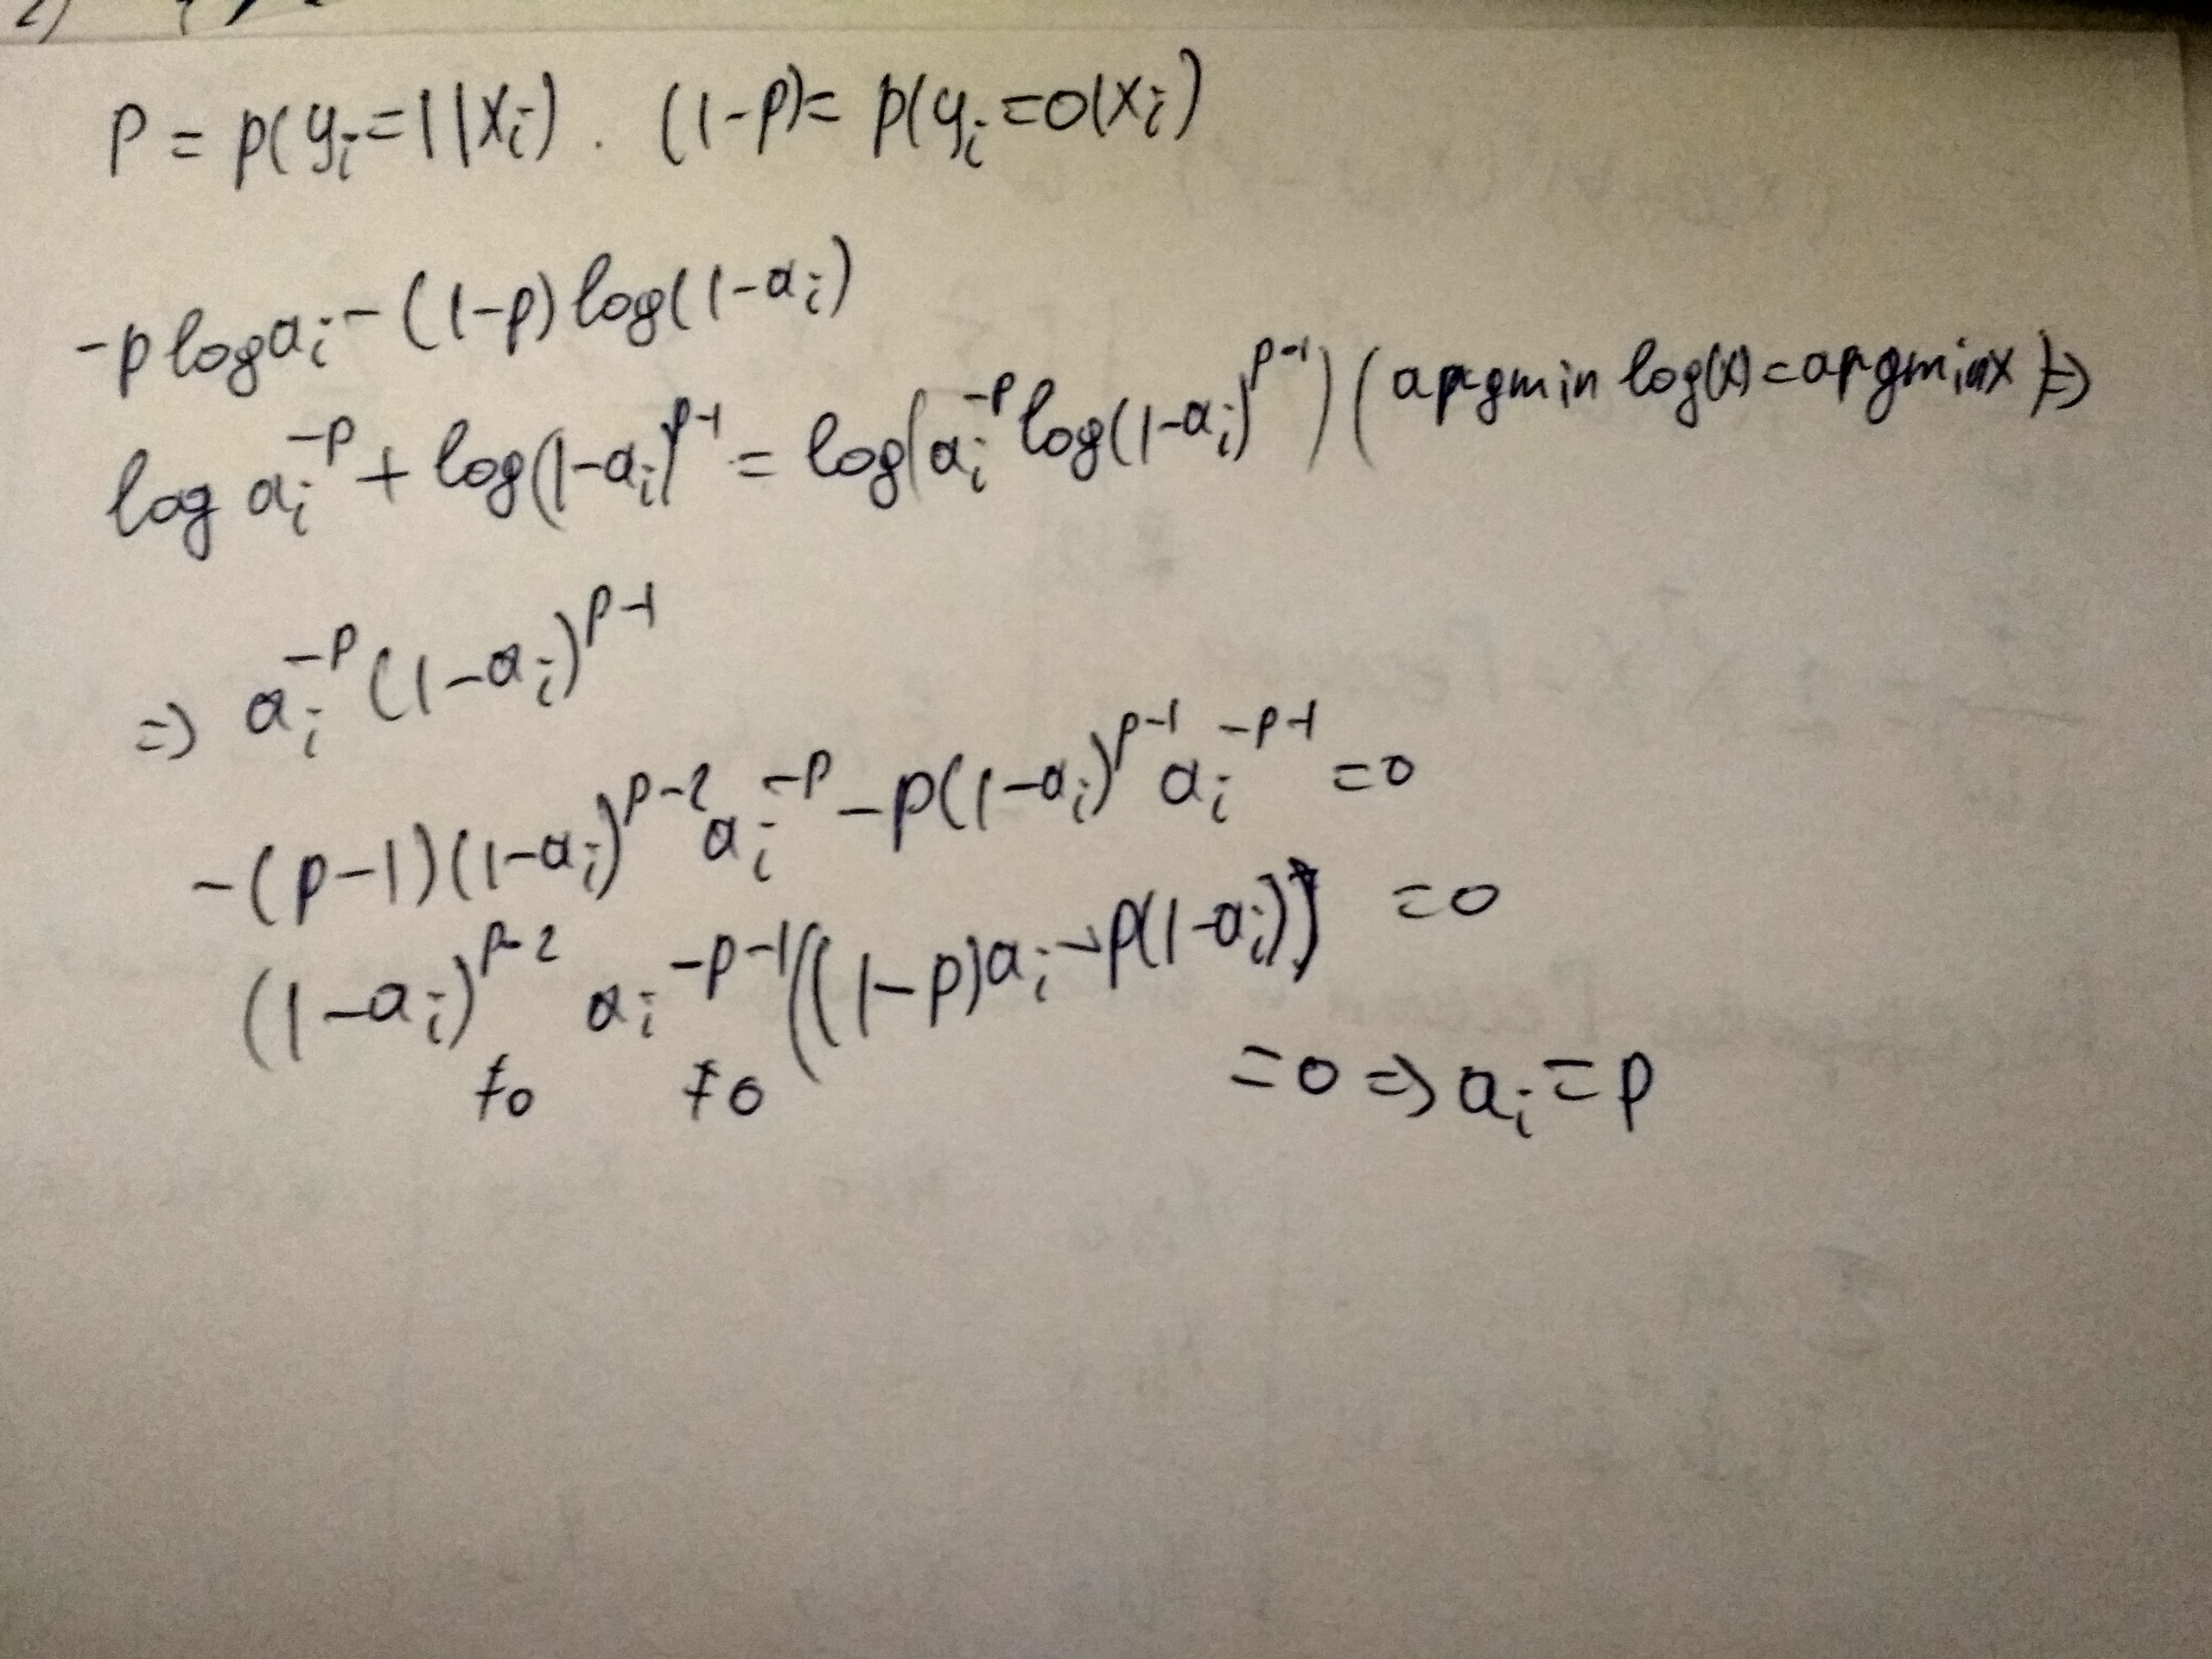 2)
P = p(y_i=1|x_i). (1-p)= p(y_i=0|x_i)
-p log a_i - (1-p) log(1-a_i)
log a_i^{-p} + log(1-a_i)^{p-1} = log(a_i^{-p} log(1-a_i)^{p-1}) (argmin log(x)=argmin x) ⇒
⇒ a_i^{-p} (1-a_i)^{p-1}
-(p-1)(1-a_i)^{p-2} a_i^{-p} - p(1-a_i)^{p-1} a_i^{-p-1} =0
(1-a_i)^{p-2} a_i^{-p-1} ((1-p)a_i - p(1-a_i)) =0
≠0 ≠0 =0 ⇒ a_i = p